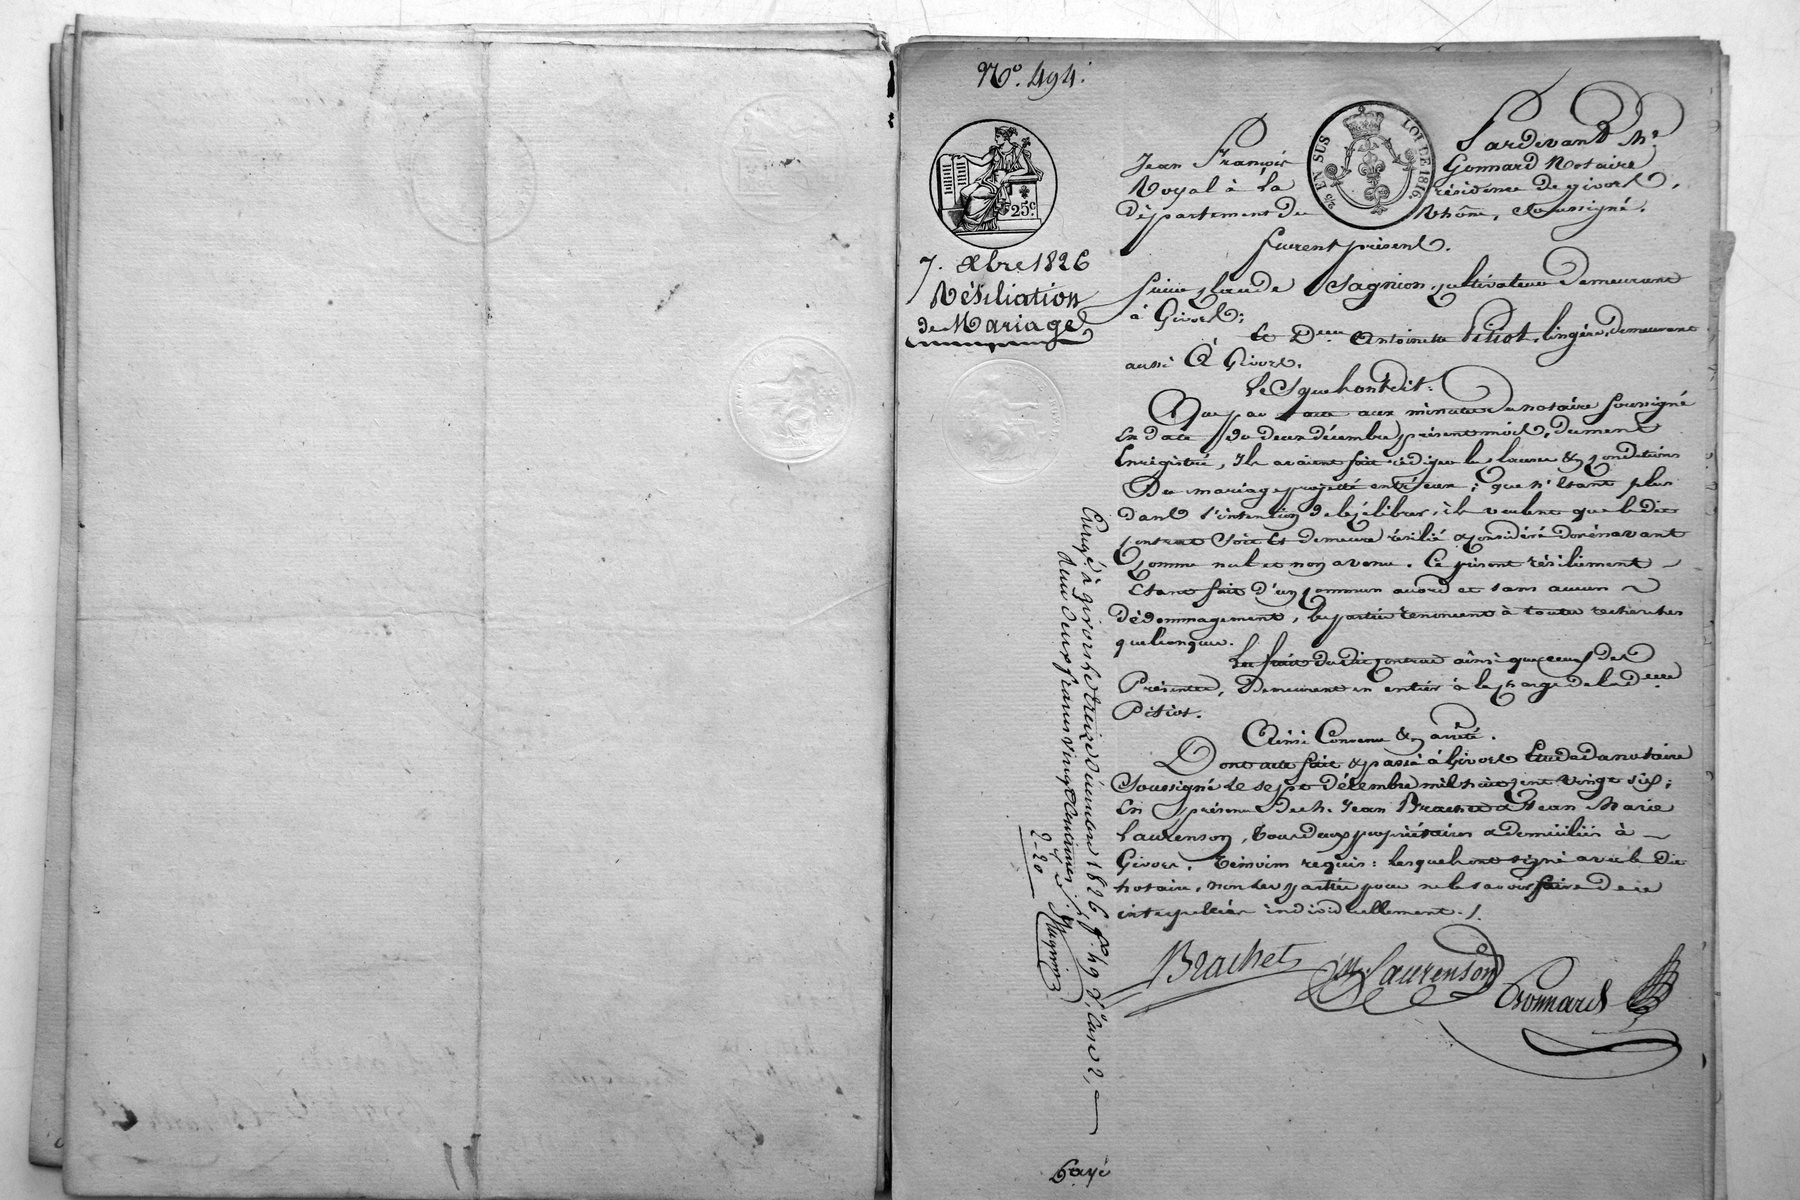 N.º 494.
25 EN SUS
LOI DE 1816.
25.c
7. Xbre 1826
Résiliation
de Mariage
Pardevant Me
Jean François Gonnard Notaire
Royal à la résidence de givors,
département du Rhône, Soussigné.
furent présens.
Claude Sagnion, cultivateur demeurant
à Givors;
Et Delle Antoinette Pitiot, lingère, demeurant
aussi à Givors.
Lesquels ont dit:
Que par acte aux minutes du notaire soussigné
en date du deux décembre présent mois, dument
Enregistré, Ils avaient fait rédiger les clauses & conditions
Du mariage projetté entr'eux; que n'étant plus
dans l'intention de le célébrer, ils veulent que ledit
contrat soit et demeure résilié & considéré dorénavant
comme nul et non avenu. Ce présent résiliement
Etant fait d'un commun accord et sans aucun
dédommagement, les parties renoncent à toutes recherches
quelconques.
Les frais dudit contrat ainsi que ceux des
Présentes, demeurent en entier à la charge de la delle
Pitiot.
Ainsi Convenu & arrêté.
Dont acte fait & passé à Givors Etude du notaire
Soussigné le sept décembre mil huit cent vingt six;
En présence de Mrs Jean Brachet & Jean Marie
Laurenson, tous deux propriétaires & domiciliés à
Givors, témoins requis: lesquels ont signé avec le dit
notaire, non les parties pour ne le savoir faire de ce
interpellées individuellement./.
Brachet
JM Laurenson
Gonnard
Enregé à givors le treize décembre 1826, fº 49 Vº, Case 2,
Reçu deux francs vingt centimes
2-20
Payé